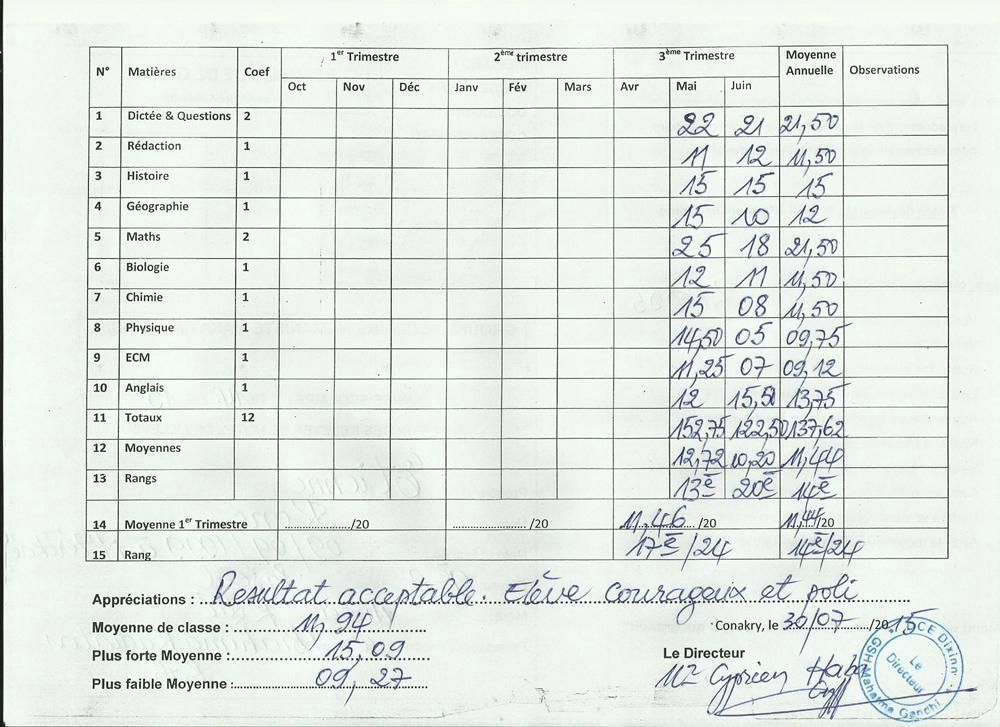 N° Matières Coef 1er Trimestre 2ème trimestre 3ème Trimestre Moyenne Annuelle Observations
Oct Nov Déc Janv Fév Mars Avr Mai Juin
1 Dictée & Questions 2 22 21 21,50
2 Rédaction 1 11 12 11,50
3 Histoire 1 15 15 15
4 Géographie 1 15 10 12
5 Maths 2 25 18 21,50
6 Biologie 1 12 11 11,50
7 Chimie 1 15 08 11,50
8 Physique 1 14,50 05 09,75
9 ECM 1 11,25 07 09,12
10 Anglais 1 12 15,50 13,75
11 Totaux 12 152,75 122,50 137,62
12 Moyennes 12,72 10,20 11,44
13 Rangs 13e 20e 14e
14 Moyenne 1er Trimestre ................/20 ................/20 11,46 /20 11,44/20
15 Rang 17e/24 14e/24
Appréciations : Resultat acceptable. Elève courageux et poli
Moyenne de classe : 11,94
Conakry, le 30/07/2015
Plus forte Moyenne : 15,09
Le Directeur
Plus faible Moyenne : 09,27
Mr Cyprien Haba
Le Directeur
GSH Mahatma Gandhi